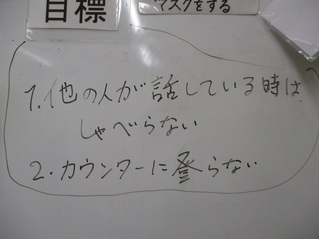 目標
マスクをする
1.他の人が話している時は
しゃべらない
2.カウンターに登らない